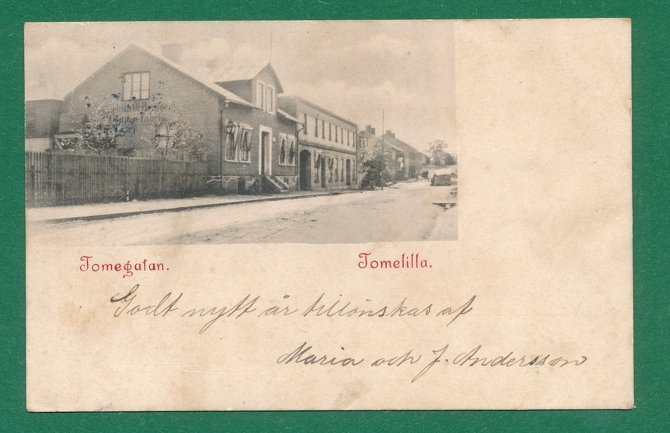 Tomegatan.
Tomelilla.
Godt nytt år tillönskas af
Maria och J. Andersson